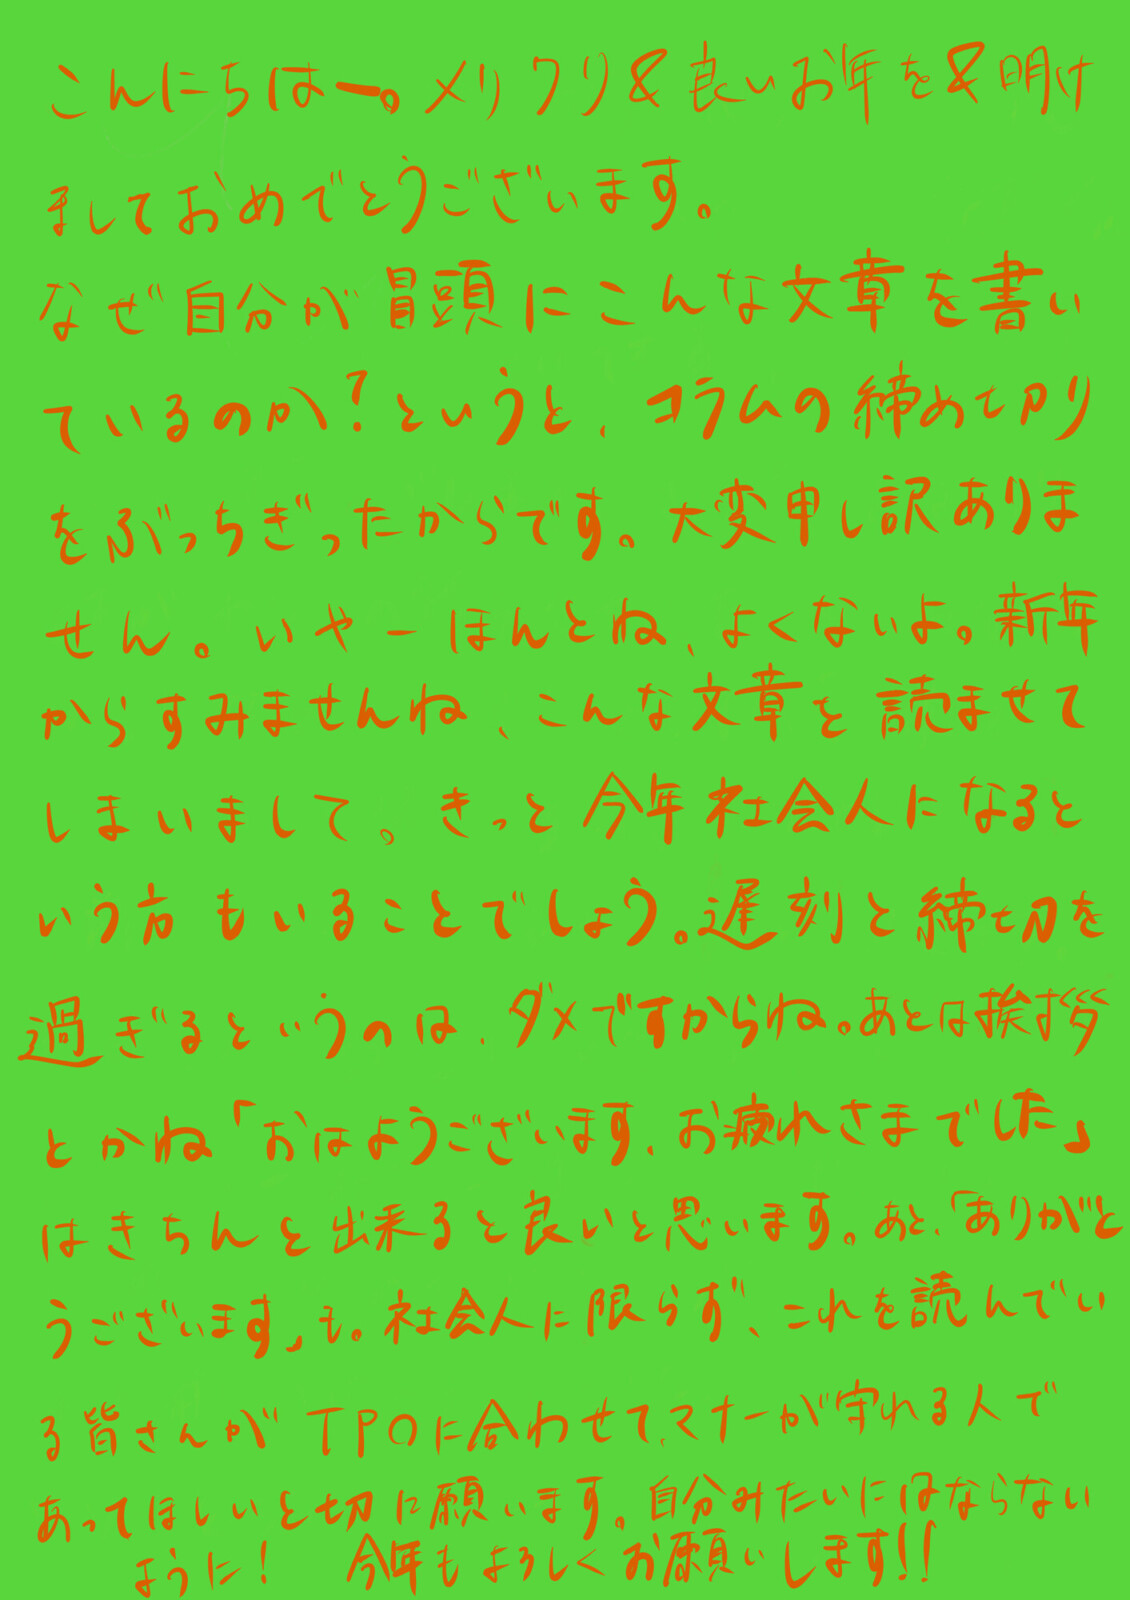 こんにちはー。メリクリ&良いお年を&明け
ましておめでとうございます。
なぜ自分が冒頭にこんな文章を書い
ているのか?というと、コラムの締め切り
をぶっちぎったからです。大変申し訳ありま
せん。いやーほんとね、よくないよ。新年
からすみませんね、こんな文章を読ませて
しまいまして。きっと今年社会人になると
いう方もいることでしょう。遅刻と締切を
過ぎるというのは、ダメですからね。あとは挨拶
とかね「おはようございます、お疲れさまでした」
はきちんと出来ると良いと思います。あと、「ありがと
うございます」も。社会人に限らず、これを読んでい
る皆さんがTPOに合わせて、マナーが守れる人で
あってほしいと切に願います。自分みたいにはならない
ように! 今年もよろしくお願いします!!